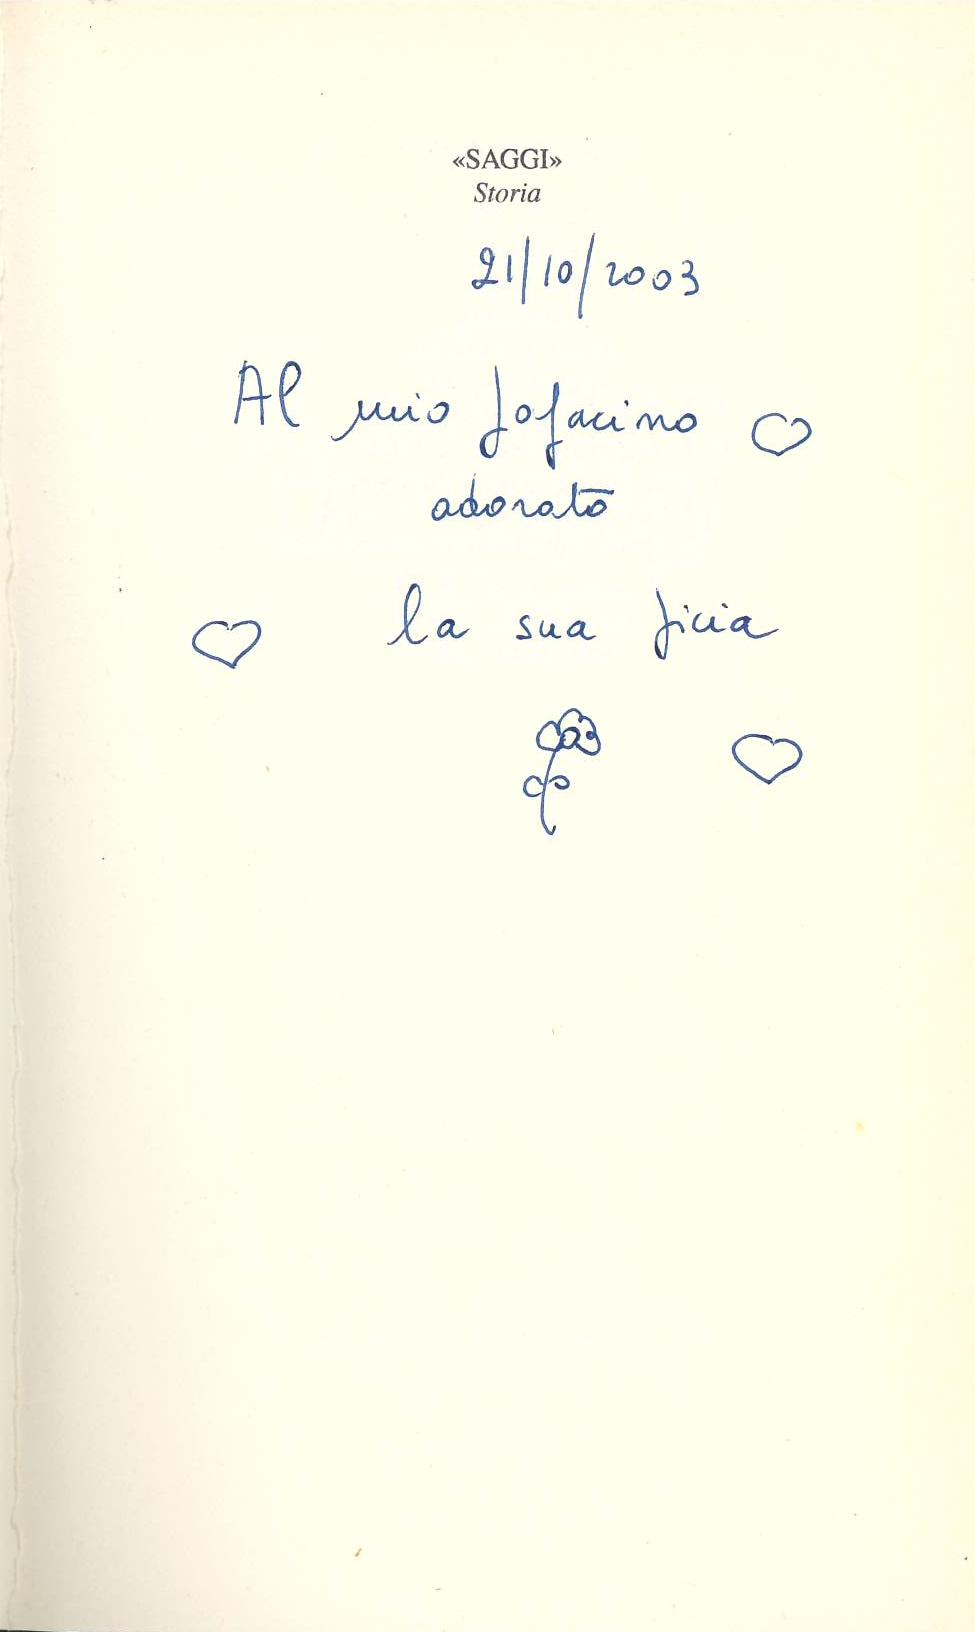 «SAGGI»
Storia
21/10/2003
Al mio fofacino
adorato
la sua ficia